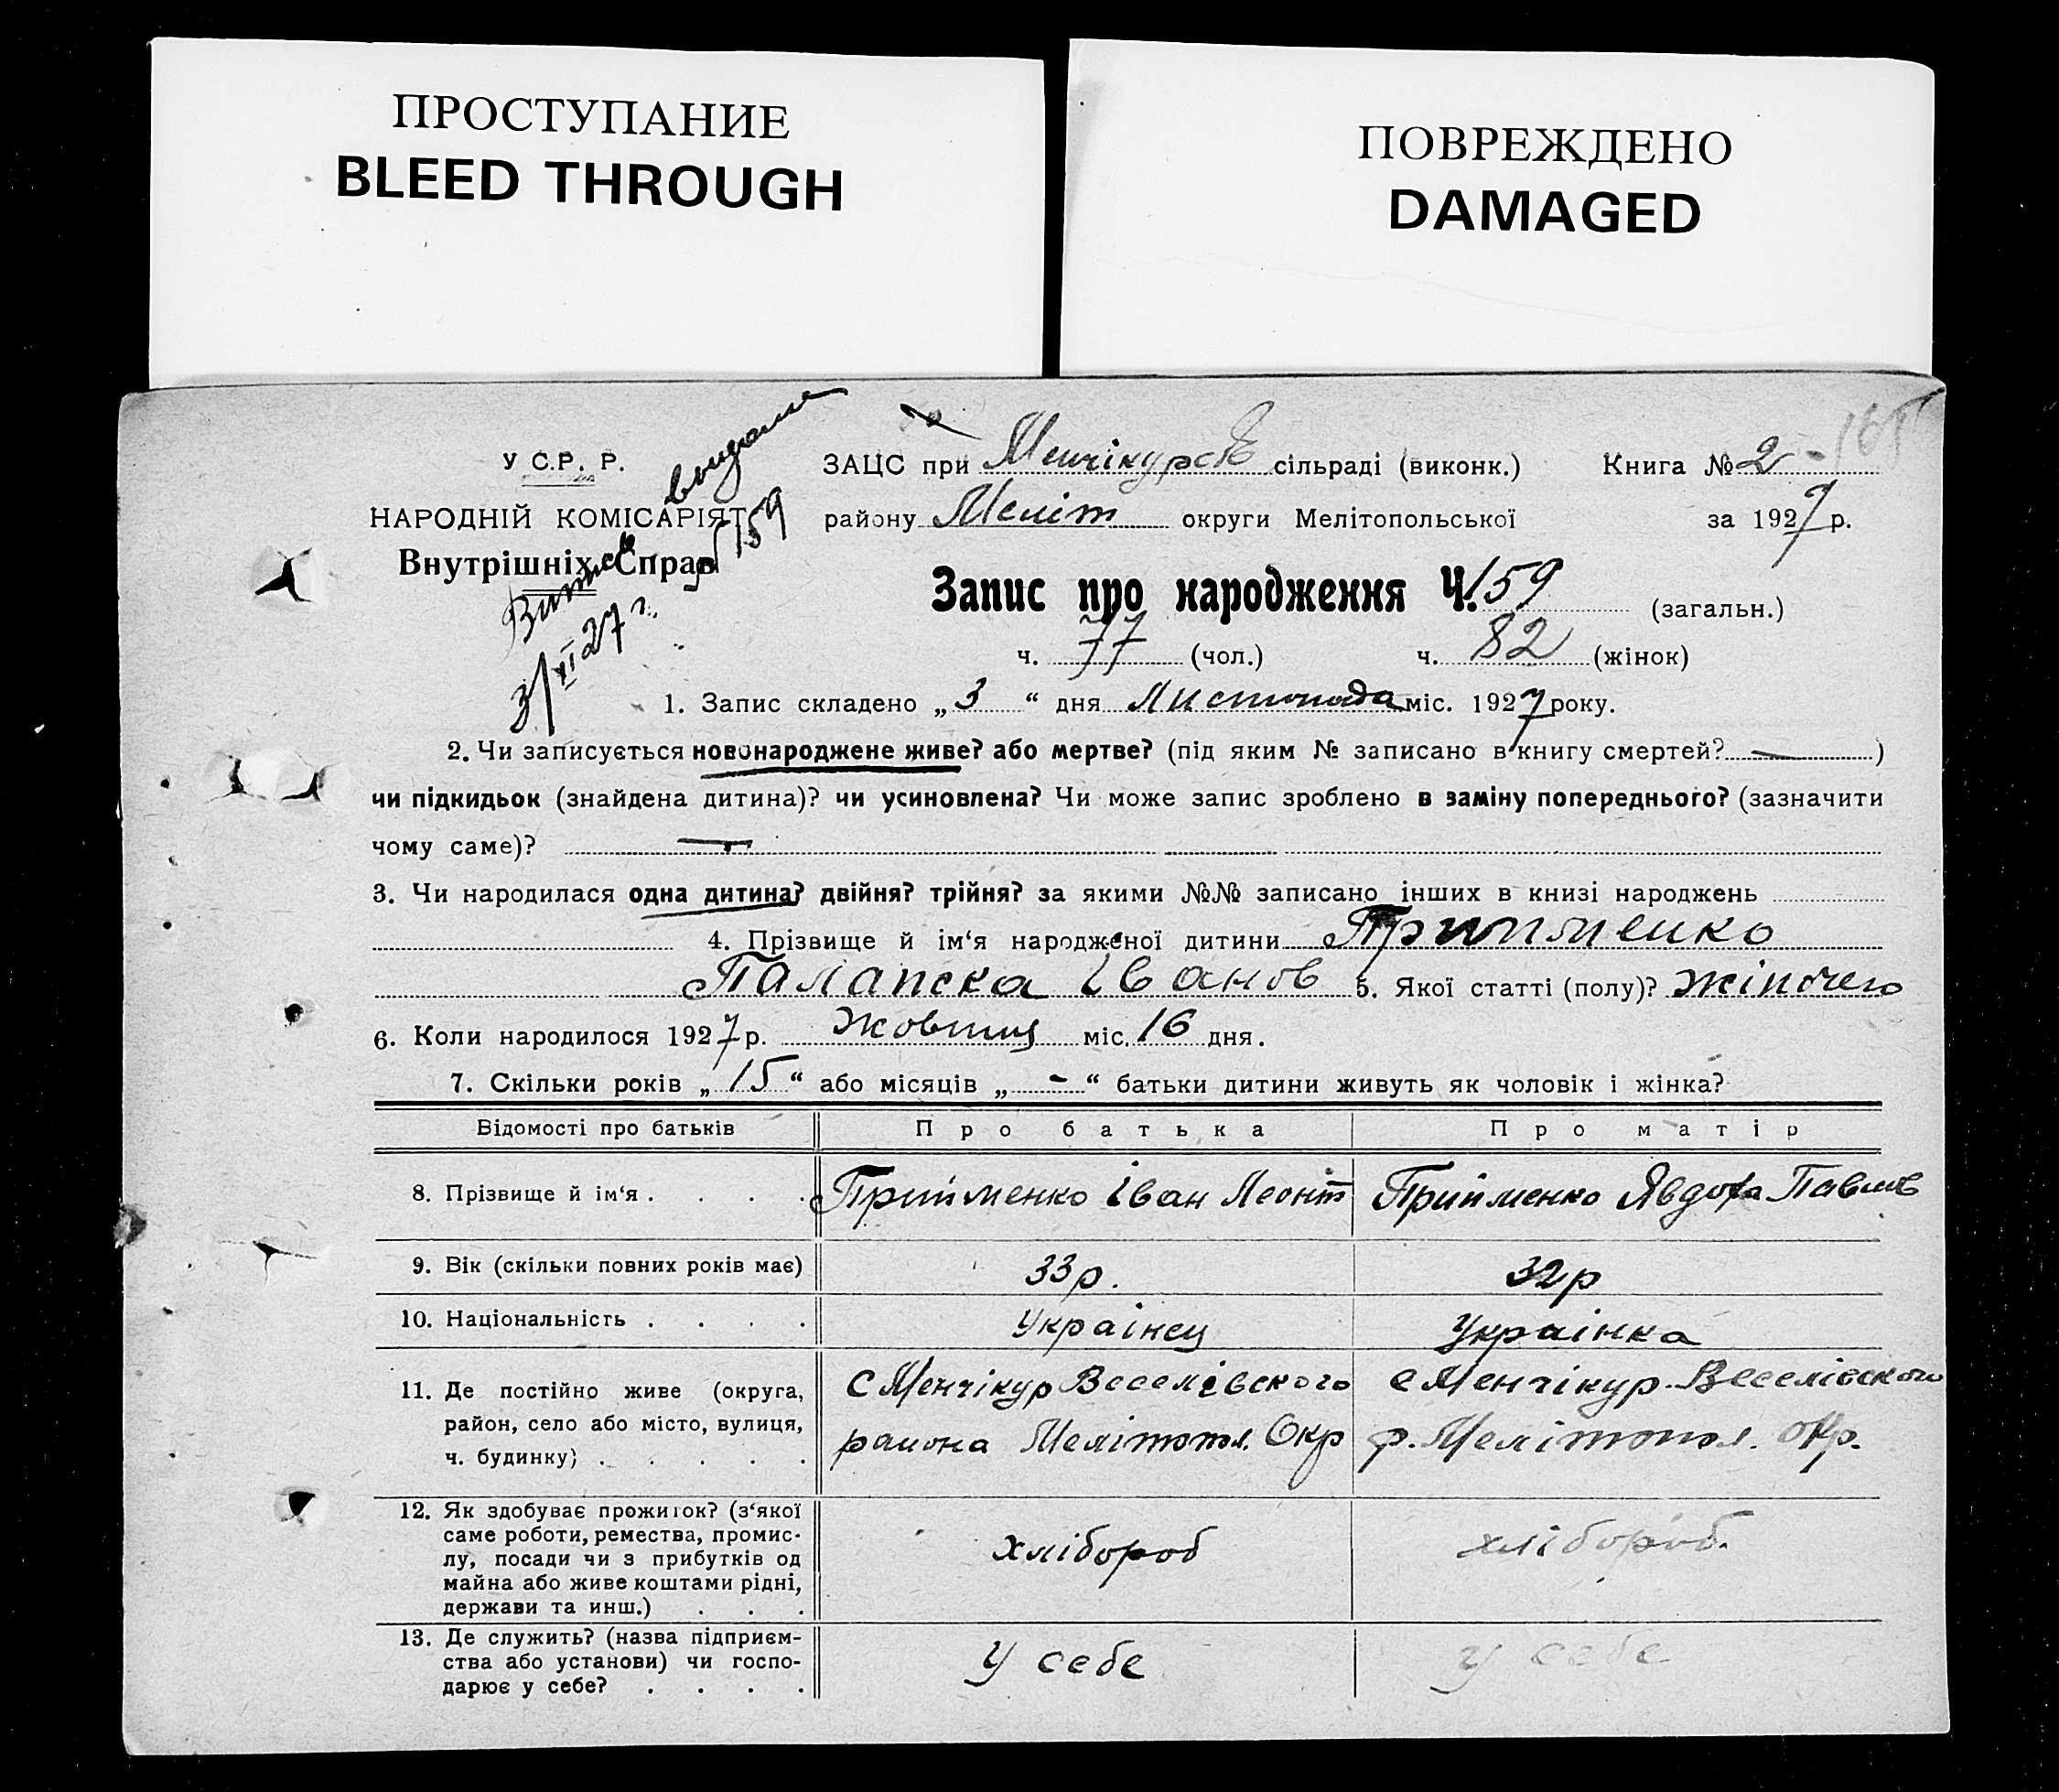 ПРОСТУПАНИЕ
BLEED THROUGH
ПОВРЕЖДЕНО
DAMAGED
165
У С.Р. Р.
НАРОДНІЙ КОМІСАРІЯТ
Внутрішніх Справ
№ 159
3/XI 27 г.
ЗАЦС при Менчікурськ сільраді (виконк.) Книга № 2
району Меліт округи Мелітопольської за 1927 р.
Запис про народження Ч. 159 (загальн.)
ч. 77 (чол.) ч. 82 (жінок)
1. Запис складено „ 3 “ дня Листопада міс. 1927 року.
2. Чи записується новонароджене живе? або мертве? (під яким № записано в книгу смертей? — )
чи підкидьок (знайдена дитина)? чи усиновлена? Чи може запис зроблено в заміну попереднього? (зазначити
чому саме)? —
3. Чи народилася одна дитина? двійня? трійня? за якими №№ записано інших в книзі народжень
4. Прізвище й ім‘я народженої дитини Прийменко
Іванов 5. Якої статті (полу)? жіночего
6. Коли народилося 1927 р. жовтня міс. 16 дня.
7. Скільки років „ 15 “ або місяців „ - “ батьки дитини живуть як чоловік і жінка?
Відомості про батьків Про батька Про матір
8. Прізвище й ім‘я . . . . Прийменко Іван Леонт Прийменко Явдоха Павлов
9. Вік (скільки повних років має) 33 р. 32 р
10. Національність . . . . Українец Українка
11. Де постійно живе (округа, с Менчікур Веселівского с Менчікур. Веселівского
район, село або місто, вулиця, района Мелітопол. Окр р. Мелітопол. окр.
ч. будинку) . . . . .
12. Як здобуває прожиток? (з‘якої
саме роботи, ремества, промис-
лу, посади чи з прибутків од хлібороб хлібороб.
майна або живе коштами рідні,
держави та инш.) . . .
13. Де служить? (назва підприєм-
ства або установи) чи госпо- у себе у себе
дарює у себе? . . . .